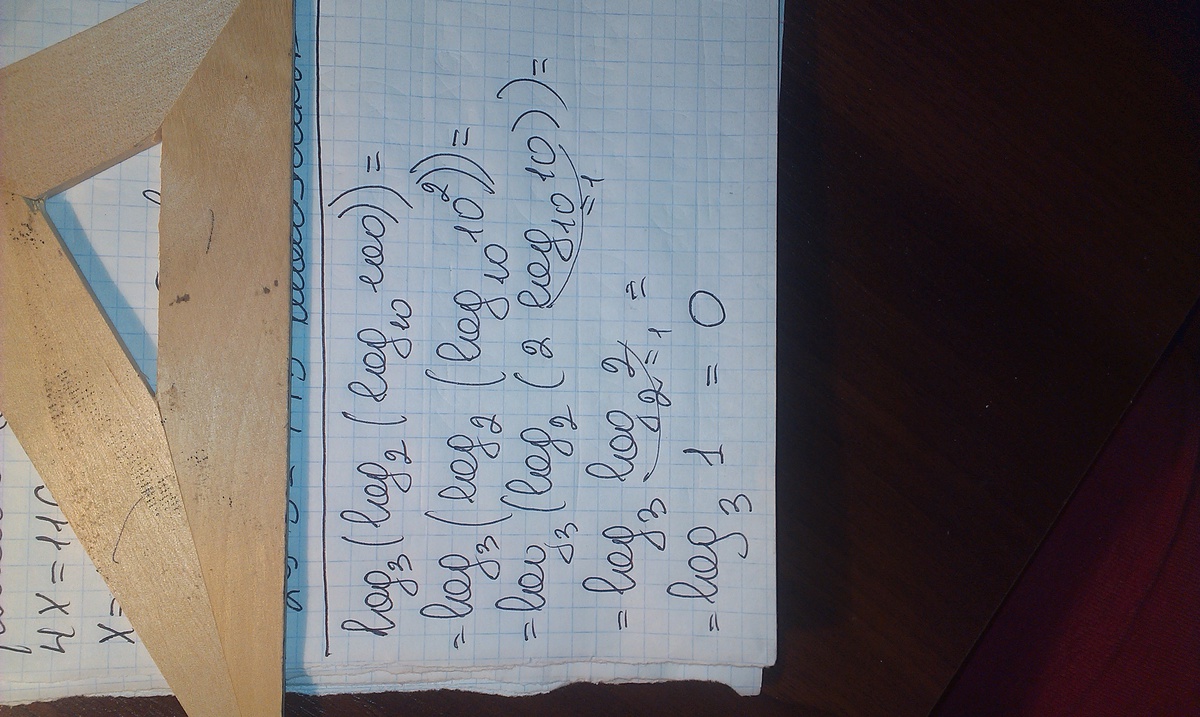 4x=110
x=
log₃(log₂(log₁₀100))=
=log₃(log₂(log₁₀10²))=
=log₃(log₂(2 log₁₀10))=
=1
=log₃ log₂2 =
=1
=log₃ 1 = 0